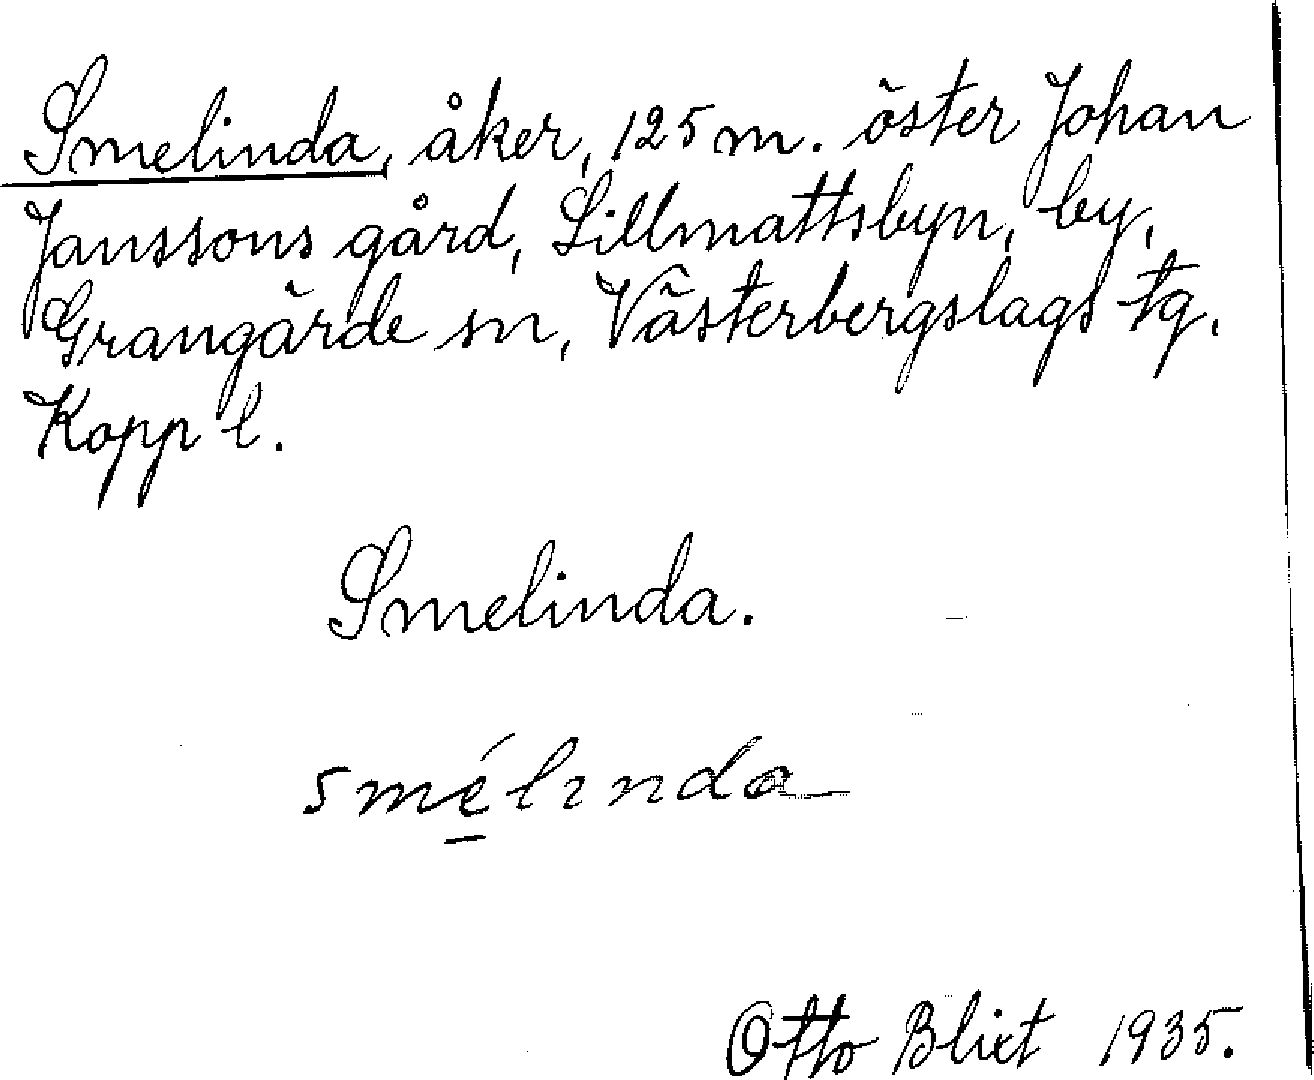 Smelinda, åker, 125 m. öster Johan
Janssons gård, Lillmattsbyn, by,
Grangärde sn, Västerbergslags tg.
Kopp l.
Smelinda.
smélinda
Otto Blixt 1935.